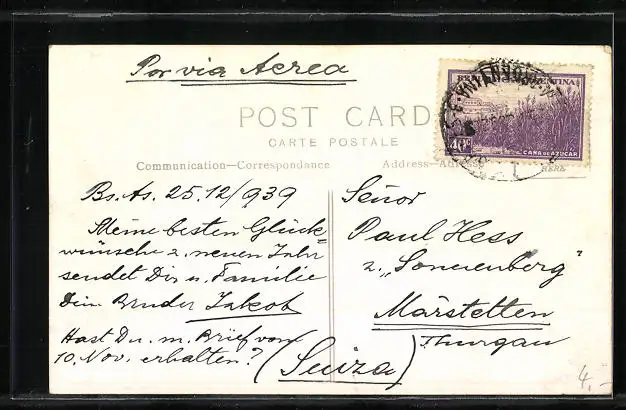 Por via Aerea
POST CARD
CARTE POSTALE
Communication—Correspondance
Address—Adresse
HERE
40c
CAÑA DE AZUCAR
Bs. As. 25.12/939
Meine besten Glück=
wünsche z. neuen Jahr
sendet Dir u. Familie
Dein Bruder Jakob
Hast Du m. Brief vom
10. Nov. erhalten?
Señor
Paul Hess
z. „Sonnenberg"
Märstetten
Thurgau
(Suiza)
4,-